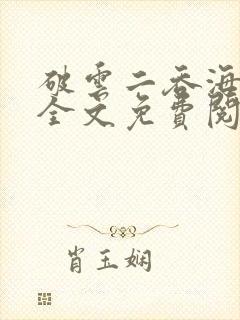 破雲二吞海
全文免費閱
肖玉娴